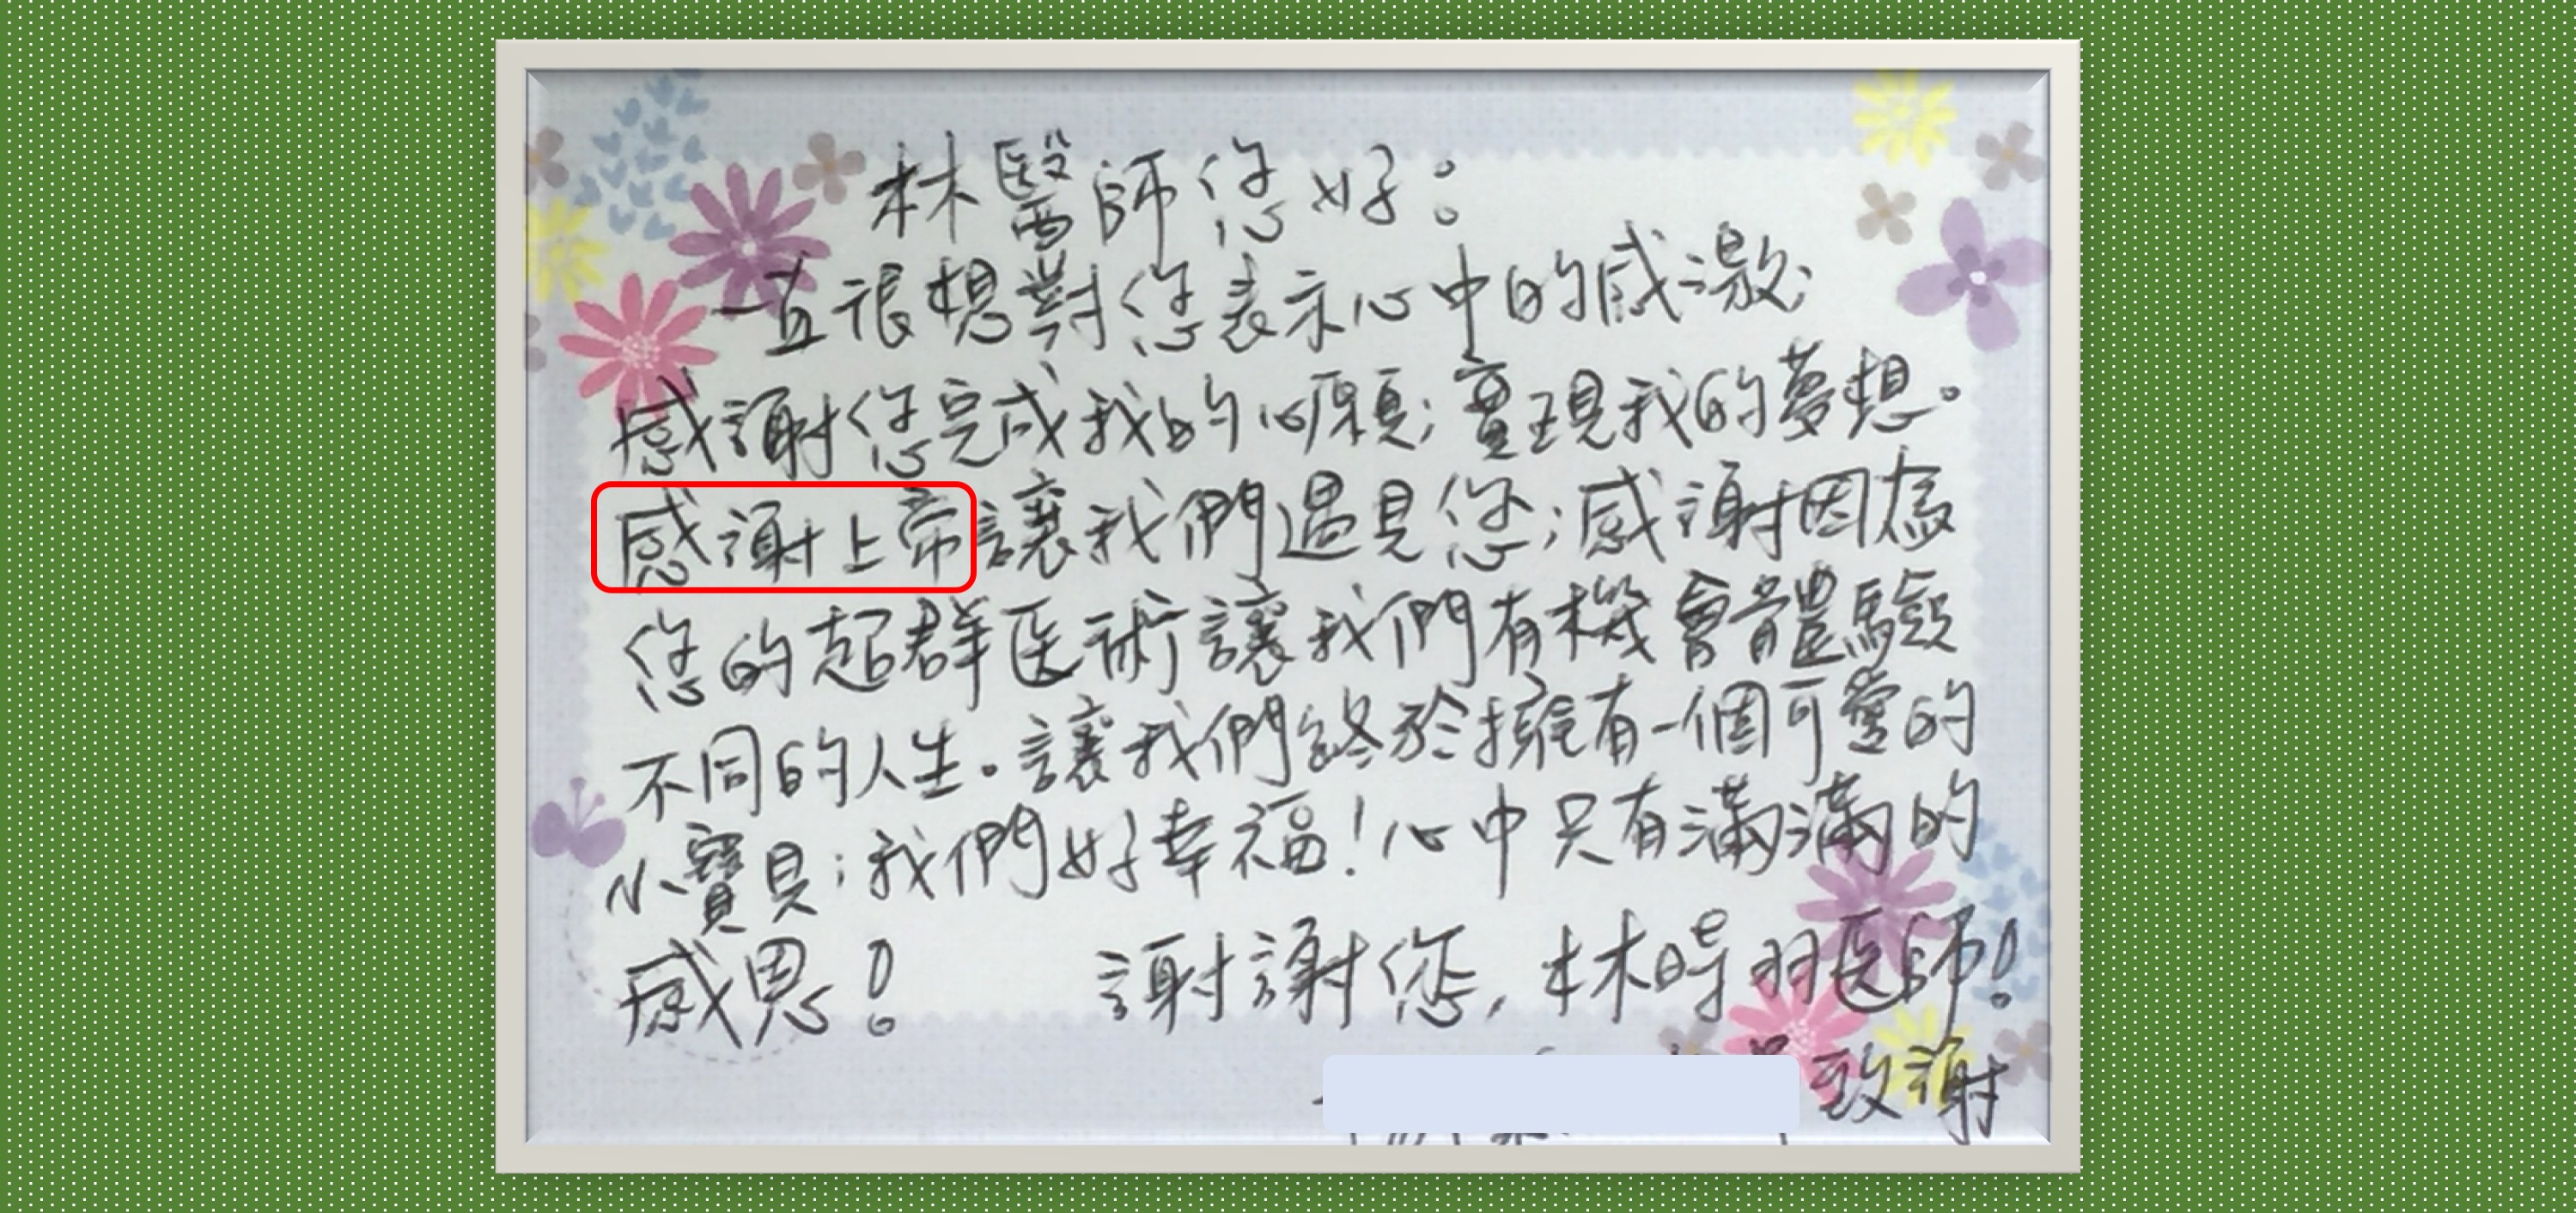 林醫師您好：
一直很想對您表示心中的感激;
感謝您完成我的心願;實現我的夢想。
感謝上帝讓我們遇見您;感謝因為
您的超群医術讓我們有機會體驗
不同的人生。讓我們終於擁有一個可愛的
小寶貝;我們好幸福!心中只有滿滿的
感恩!　謝謝您,林時羽医師!
致謝